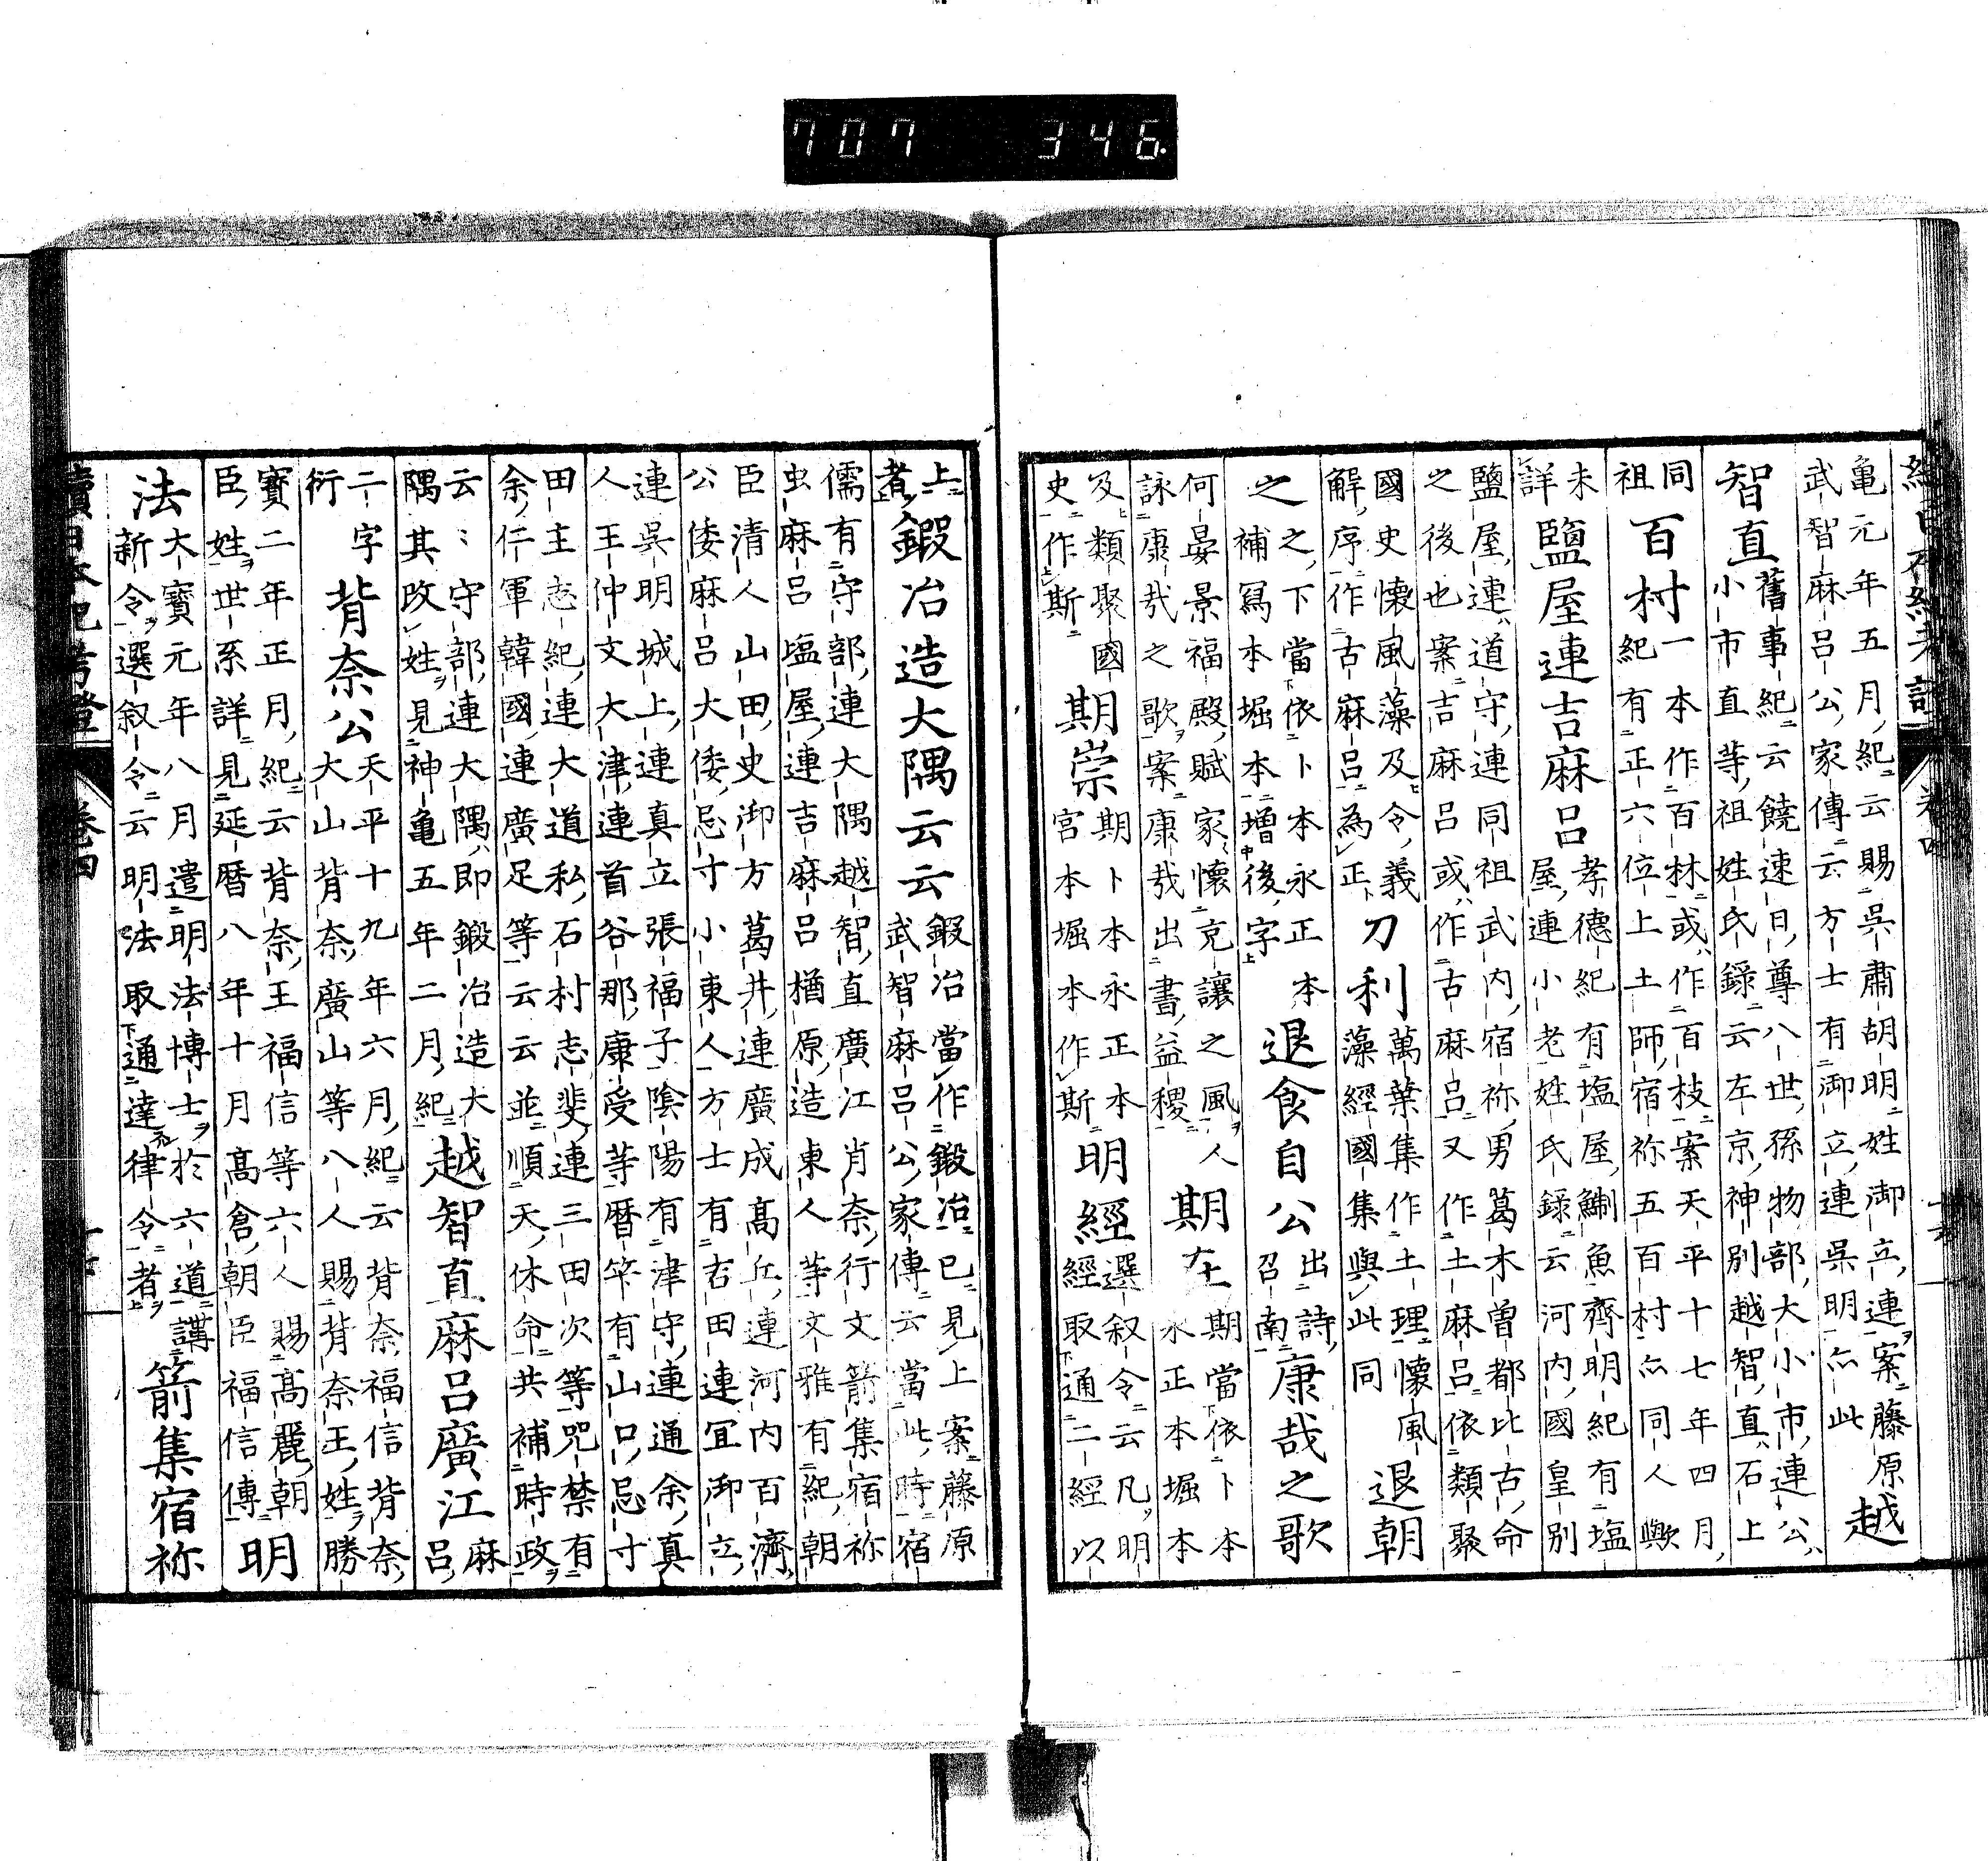 707 346
亀元年五月紀云賜呉肅胡明姓御立連案藤原
武智麻呂公家傳云方士有御立連呉明亦此
越
智直
舊事紀云饒速日尊八世孫物部大小市連公
小市直等祖姓氏錄云左京神別越智直石上
同一本作百林或作百枝案天平十七年四月
祖
百村
紀有正六位上土師宿祢五百村亦同人歟
未
詳
鹽屋連吉麻呂
孝德紀有塩屋鯯魚齊明紀有塩
屋連小老姓氏錄云河内國皇別
鹽屋連道守連同祖武内宿祢男葛木曽都比古命
之後也案吉麻呂或作古麻呂又作土麻呂依類聚
國史懷風藻及令義
解序作古麻呂為正
刀利
萬葉集作土理懷風
藻經國集與此同
退朝
之
之下當依卜本永正本
補冩本堀本増後字
退食自公
出詩
召南
康哉之歌
何晏景福殿賦家懷克讓之風人
詠康哉之歌案康哉出書益稷
期在
期當依卜本
永正本堀本
及類聚國
史作斯
期崇
期卜本永正本
宮本堀本作斯
明經
選叙令云凡明
經取通二經以
上
者
鍛冶造大隅云云
鍛冶當作鍛冶已見上案藤原
武智麻呂公家傳云當此時宿
儒有守部連大隅越智直廣江肖奈行文箭集宿祢
虫麻呂塩屋連吉麻呂楢原造東人等文雅有紀朝
臣清人山田史御方葛井連廣成髙丘連河内百濟
公倭麻呂大倭忌寸小東人方士有吉田連宜御立
連呉明城上連真立張福子陰陽有津守連通余真
人王仲文大津連首谷那康受等暦筭有山口忌寸
田主志紀連大道私石村志斐連三田次等咒禁有
余仁軍韓國連廣足等云云並順天休命共補時政
云〻守部連大隅即鍛冶造大
隅其改姓見神亀五年二月紀
越智直麻呂廣江
麻
呂
二字
衍
背奈公
天平十九年六月紀云背奈福信背奈
大山背奈廣山等八人賜背奈王姓勝
寳二年正月紀云背奈王福信等六人賜髙麗朝
臣姓世系詳見延暦八年十月髙倉朝臣福信傳
明
法
大寳元年八月遣明法博士於六道講
新令選叙令云明法取通達律令者
箭集宿祢
續日本紀考證
卷四